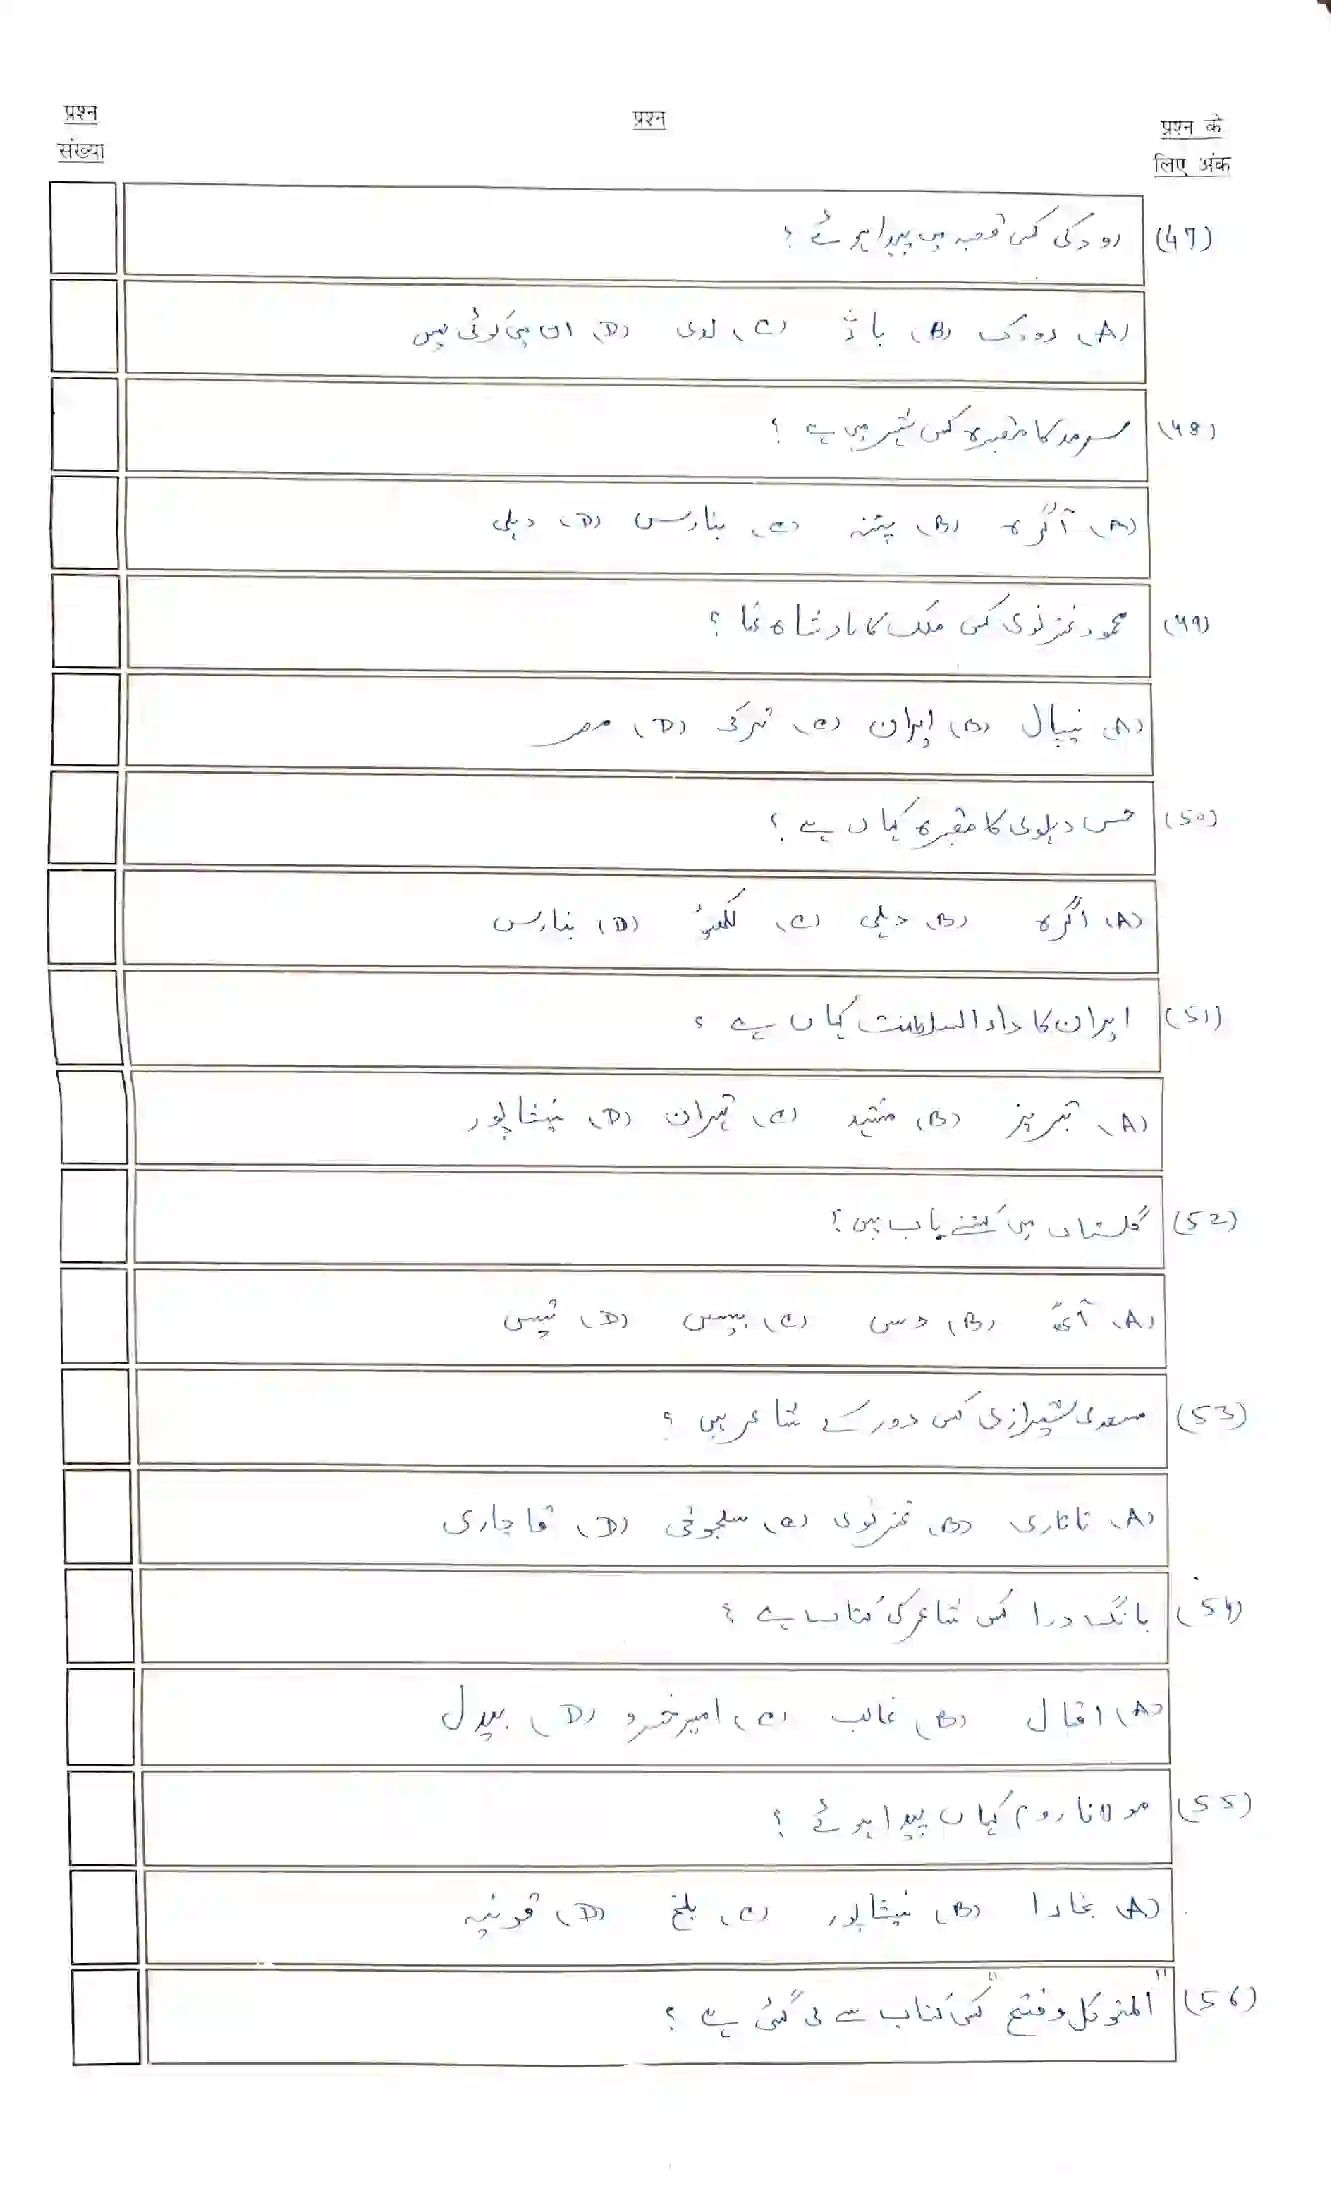 प्रश्न संख्या
प्रश्न
प्रश्न के लिए अंक
(47) رودکی کس قصبہ میں پیدا ہوئے ؟
(A) رودک (B) باژ (C) لدی (D) ان میں کوئی نہیں
(48) سرمد کا مقبرہ کس شہر میں ہے ؟
(A) آگرہ (B) پٹنہ (C) بنارس (D) دہلی
(49) محمود غزنوی کس ملک کا بادشاہ تھا ؟
(A) نیپال (B) ایران (C) ترکی (D) مصر
(50) حسن دہلوی کا مقبرہ کہاں ہے ؟
(A) اگرہ (B) دہلی (C) لکھنؤ (D) بنارس
(51) ایران کا دارالسلطنت کہاں ہے ؟
(A) تبریز (B) مشہد (C) تہران (D) نیشاپور
(52) گلستاں میں کتنے باب ہیں ؟
(A) آٹھ (B) دس (C) بیس (D) تیس
(53) سعدی شیرازی کس دور کے شاعر ہیں ؟
(A) تاتاری (B) غزنوی (C) سلجوقی (D) قاچاری
(54) بانگ درا کس شاعر کی کتاب ہے ؟
(A) اقبال (B) غالب (C) امیر خسرو (D) بیدل
(55) مولانا روم کہاں پیدا ہوئے ؟
(A) بخارا (B) نیشاپور (C) بلخ (D) قونیہ
(56) "المتوکل و فتح" کس کتاب سے لی گئی ہے ؟